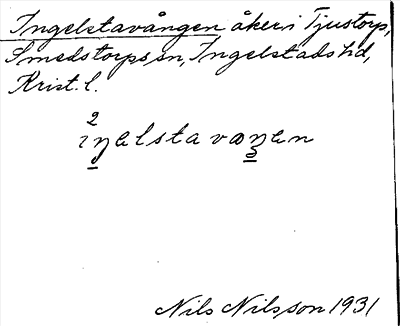 Ingelstavången åker i Tjustorp,
Smedstorps sn, Ingelstads hd,
Krist. l.
2
ıŋəlsta vaŋən
Nils Nilsson 1931